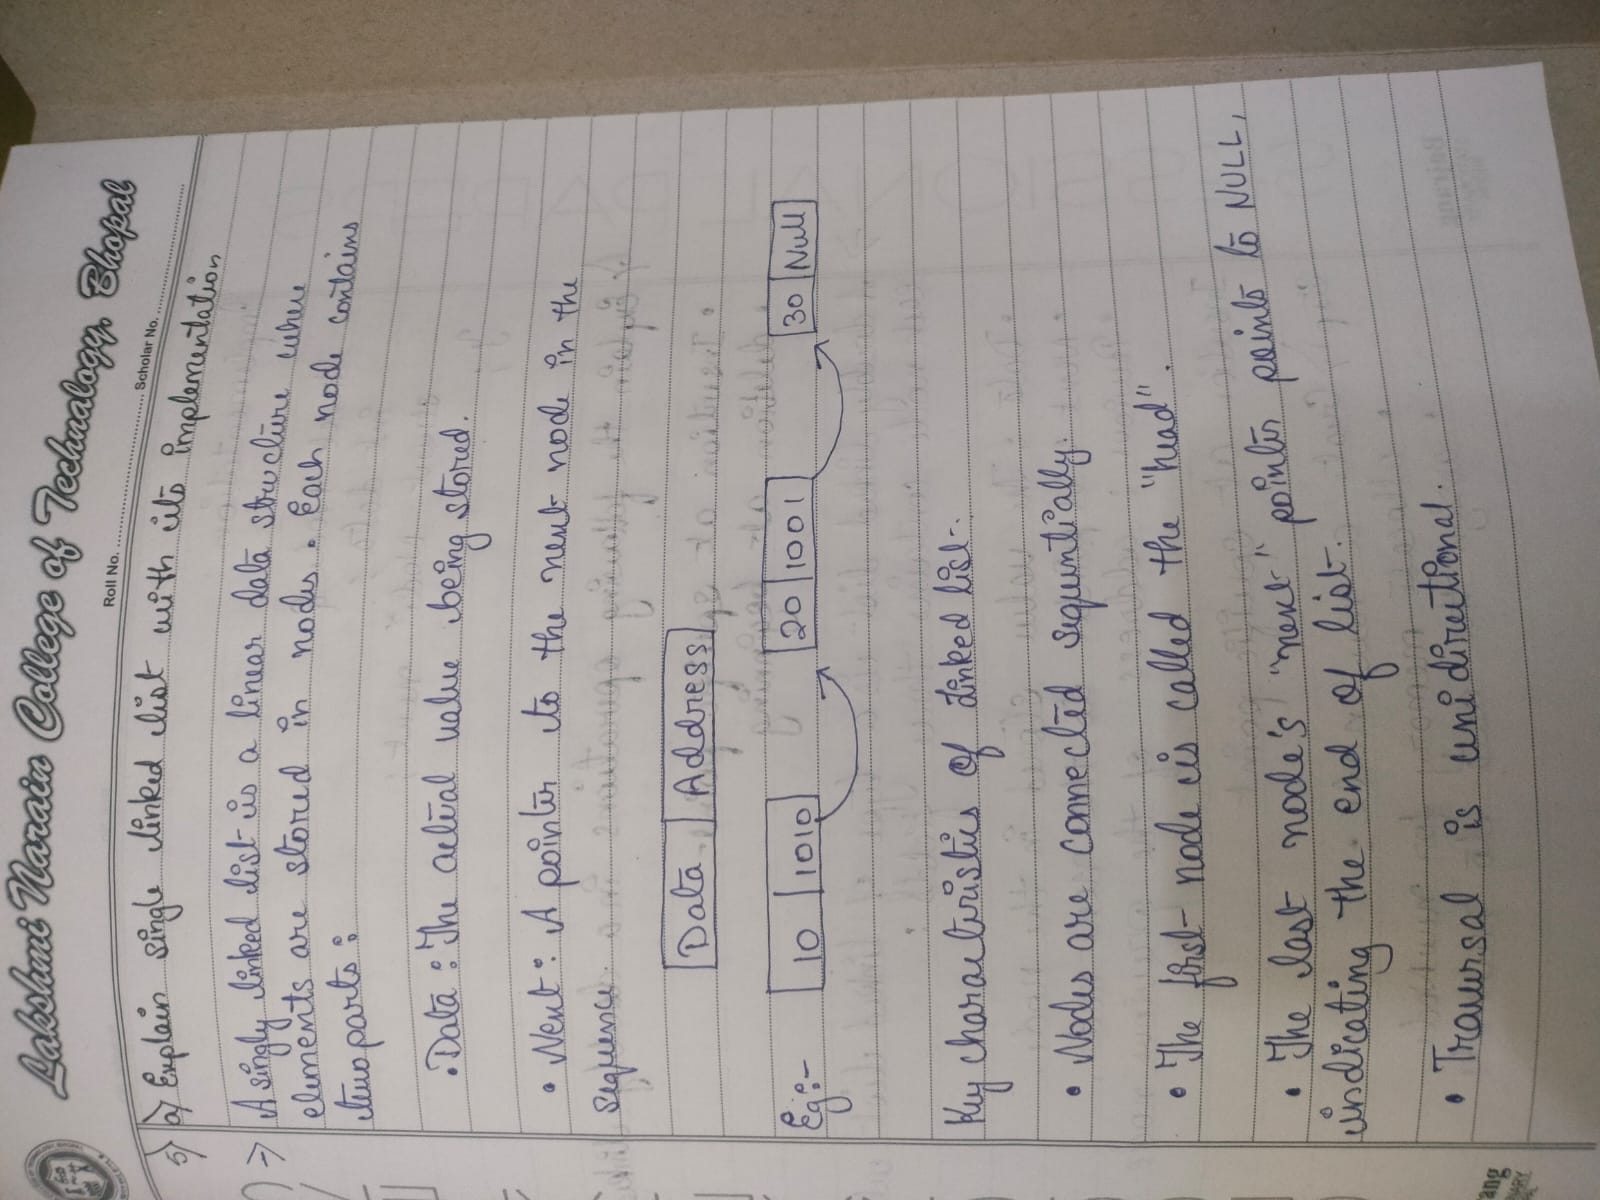 Lakshmi Narain College of Technalogy, Bhopal
Roll No. .......... Scholar No. ..........
5) a) Explain single linked list with its implementation
→ A singly linked list is a linear data structure where
elements are stored in nodes. Each node contains
two parts:
• Data: The actual value being stored.
• Next: A pointer to the next node in the
sequence.
Data | Address
Eg:- 10 | 1010 20 | 1001 30 | Null
Key characteristics of Linked list-:
• Nodes are connected sequentially.
• The first node is called the "head".
• The last node's "next" pointer points to NULL,
indicating the end of list.
• Traversal is unidirectional.